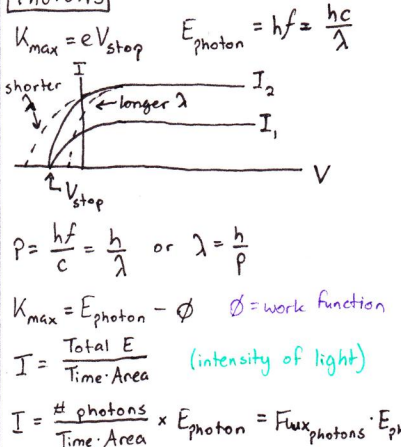 Photons
K_max = eV_stop E_photon = hf = hc/λ
I
shorter λ
← longer λ
I₂
I₁
V
V_stop
P = hf/c = h/λ or λ = h/p
K_max = E_photon − ϕ ϕ = work function
I = Total E / Time · Area (intensity of light)
I = # photons / Time · Area × E_photon = Flux_photons · E_ph